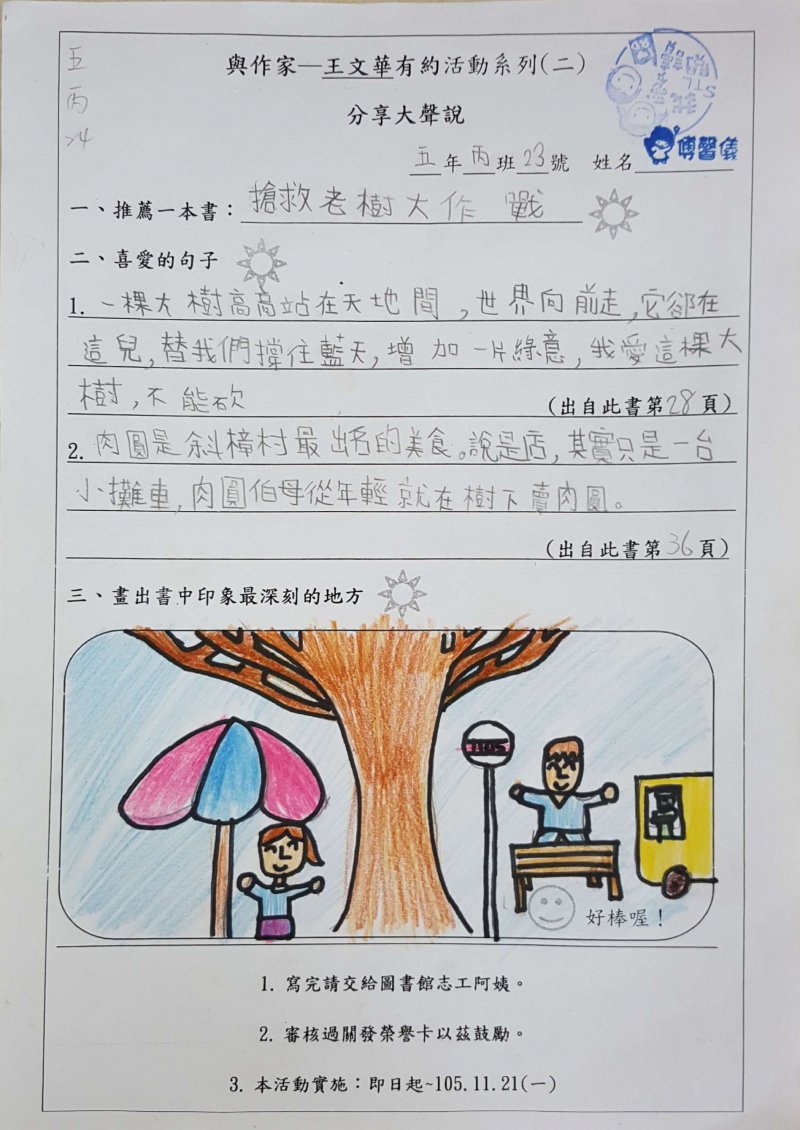 五
丙
24
與作家—王文華有約活動系列(二)
分享大聲說
五年丙班23號 姓名 傅馨儀
一、推薦一本書：搶救老樹大作戰
二、喜愛的句子
1. 一棵大樹高高站在天地間，世界向前走，它卻在
這兒，替我們撐住藍天，增加一片綠意，我愛這棵大
樹，不能砍
(出自此書第28頁)
2. 肉圓是斜樟村最出名的美食。說是店，其實只是一台
小攤車，肉圓伯母從年輕就在樹下賣肉圓。
(出自此書第36頁)
三、畫出書中印象最深刻的地方
BUS
好棒喔！
1. 寫完請交給圖書館志工阿姨。
2. 審核過關發榮譽卡以茲鼓勵。
3. 本活動實施：即日起~105.11.21(一)